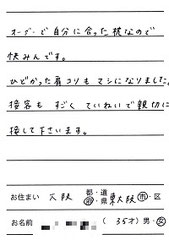 オーダーで自分に合った枕なので
快みんです。
ひどかった肩コリもマシになりました。
接客もすごくていねいで親切に
接して下さいます。
お住まい 大阪 都・道・府・県 東大阪 市・区
お名前 (35才) 男・女